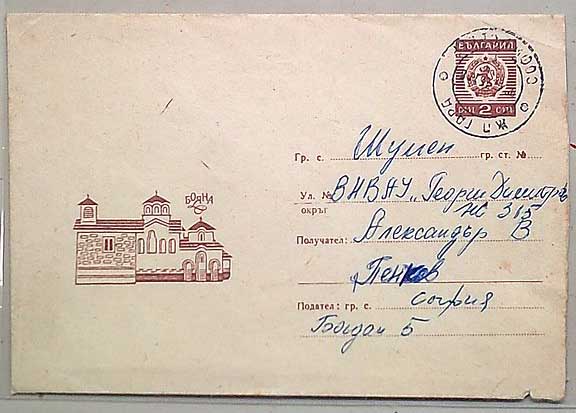 БЪЛГАРИЯ
2
СОФИЯ
Гр. с. Шумен гр. ст. №
Ул. № ВНВАУ „Георги Димитров
окръг НС 315
БОЯНА
Получател: Александър В
Пенков
Подател: гр. с. София
Богдан 5